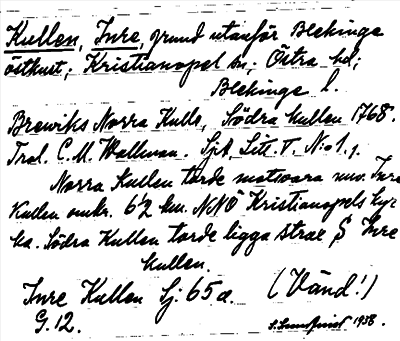 Kullen, Inre, grund utanför Blekinge
östkust; Kristianopel sn; Östra hd;
Blekinge l.
Brewiks Norra Kulle, Södra kullen 1768.
Tral. C.M. Wallman. Sjk, Litt. T. N:o 1.
Norra Kullen torde motsvara nuv. Inre
Kullen omkr. 6½ km. NNÖ Kristianopels kyr
ka. Södra Kullen torde ligga strax S Inre
kullen.
Inre Kullen Sj. 65a. (Vänd!)
G.12. S. Sundquist 1938.